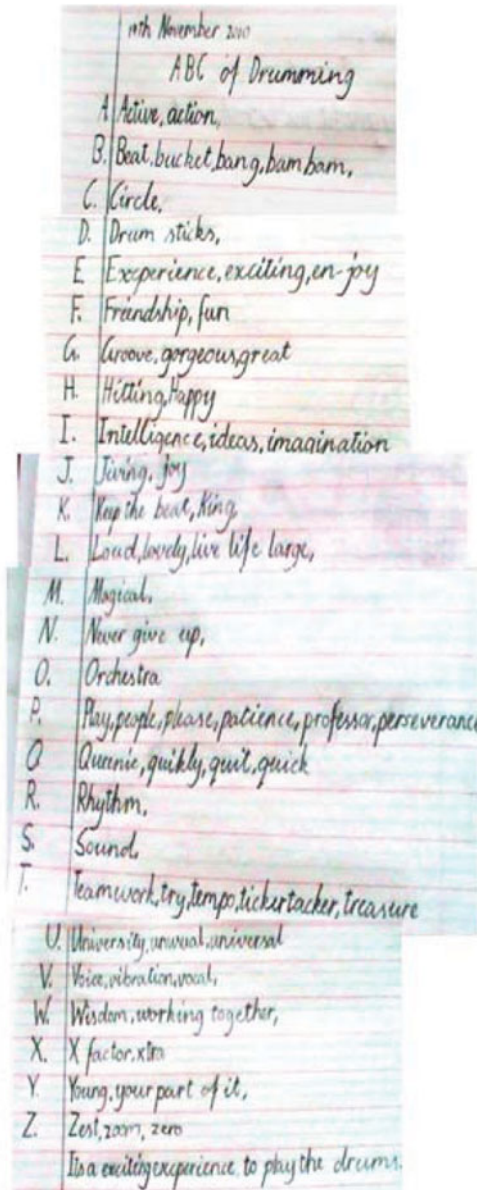 11th November 2010
ABC of Drumming
A. Active, action,
B. Beat, bucket, bang, bam bam,
C. Circle,
D. Drum sticks,
E Experience, exciting, en-joy
F. Friendship, fun
G. Groove, gorgeous, great
H. Hitting, Happy
I. Intelligence, ideas, imagination
J. Jiving, joy
K. Keep the beat, King,
L. Loud, lovely, live life large,
M. Magical,
N. Never give up,
O. Orchestra
P. Play, people, please, patience, professor, perseverance
Q Queenie, quikly, quit, quick
R. Rhythm,
S. Sound,
T. Teamwork, try, tempo, tickertacker, treasure
U. University, unusual, universal
V. Voice, vibration, vocal,
W. Wisdom, working together,
X. X factor, xtra
Y. Young, your part of it,
Z. Zest, zoom, zero
Its a exciting experience to play the drums.